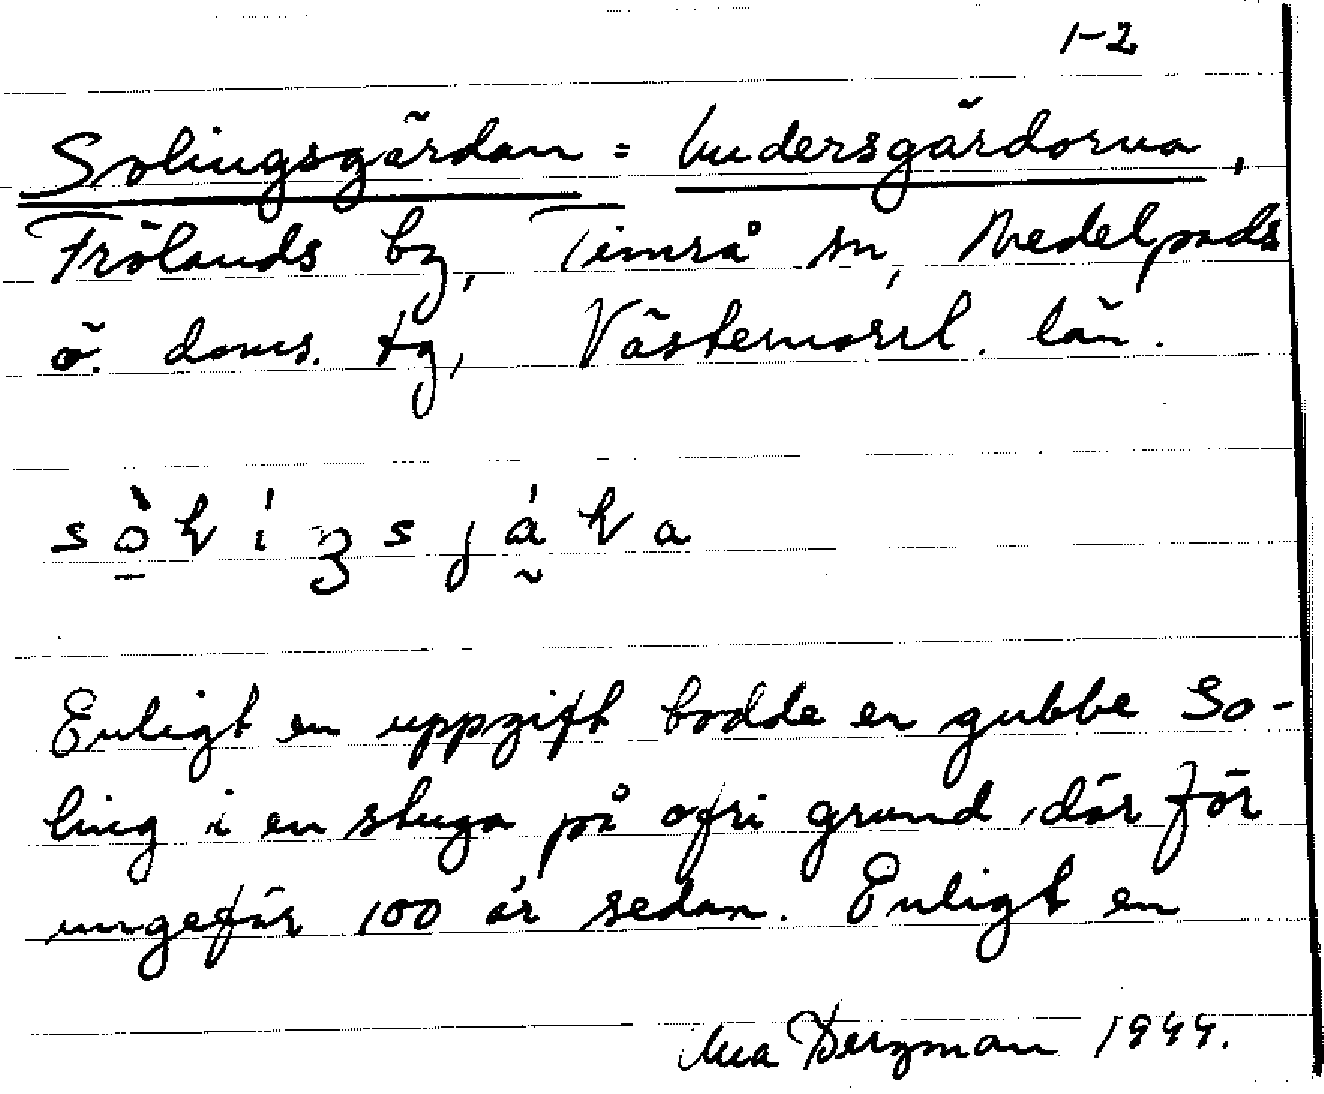 1-2
Solingsgärdan = Undersgärdorna,
Frölands by, Timrå sn, Medelpads
ö. doms. tg, Västernorrl. län.
Enligt en uppgift bodde en gubbe So-
ling i en stuga på ofri grund där för
ungefär 100 år sedan. Enligt en
Bergman 1944.